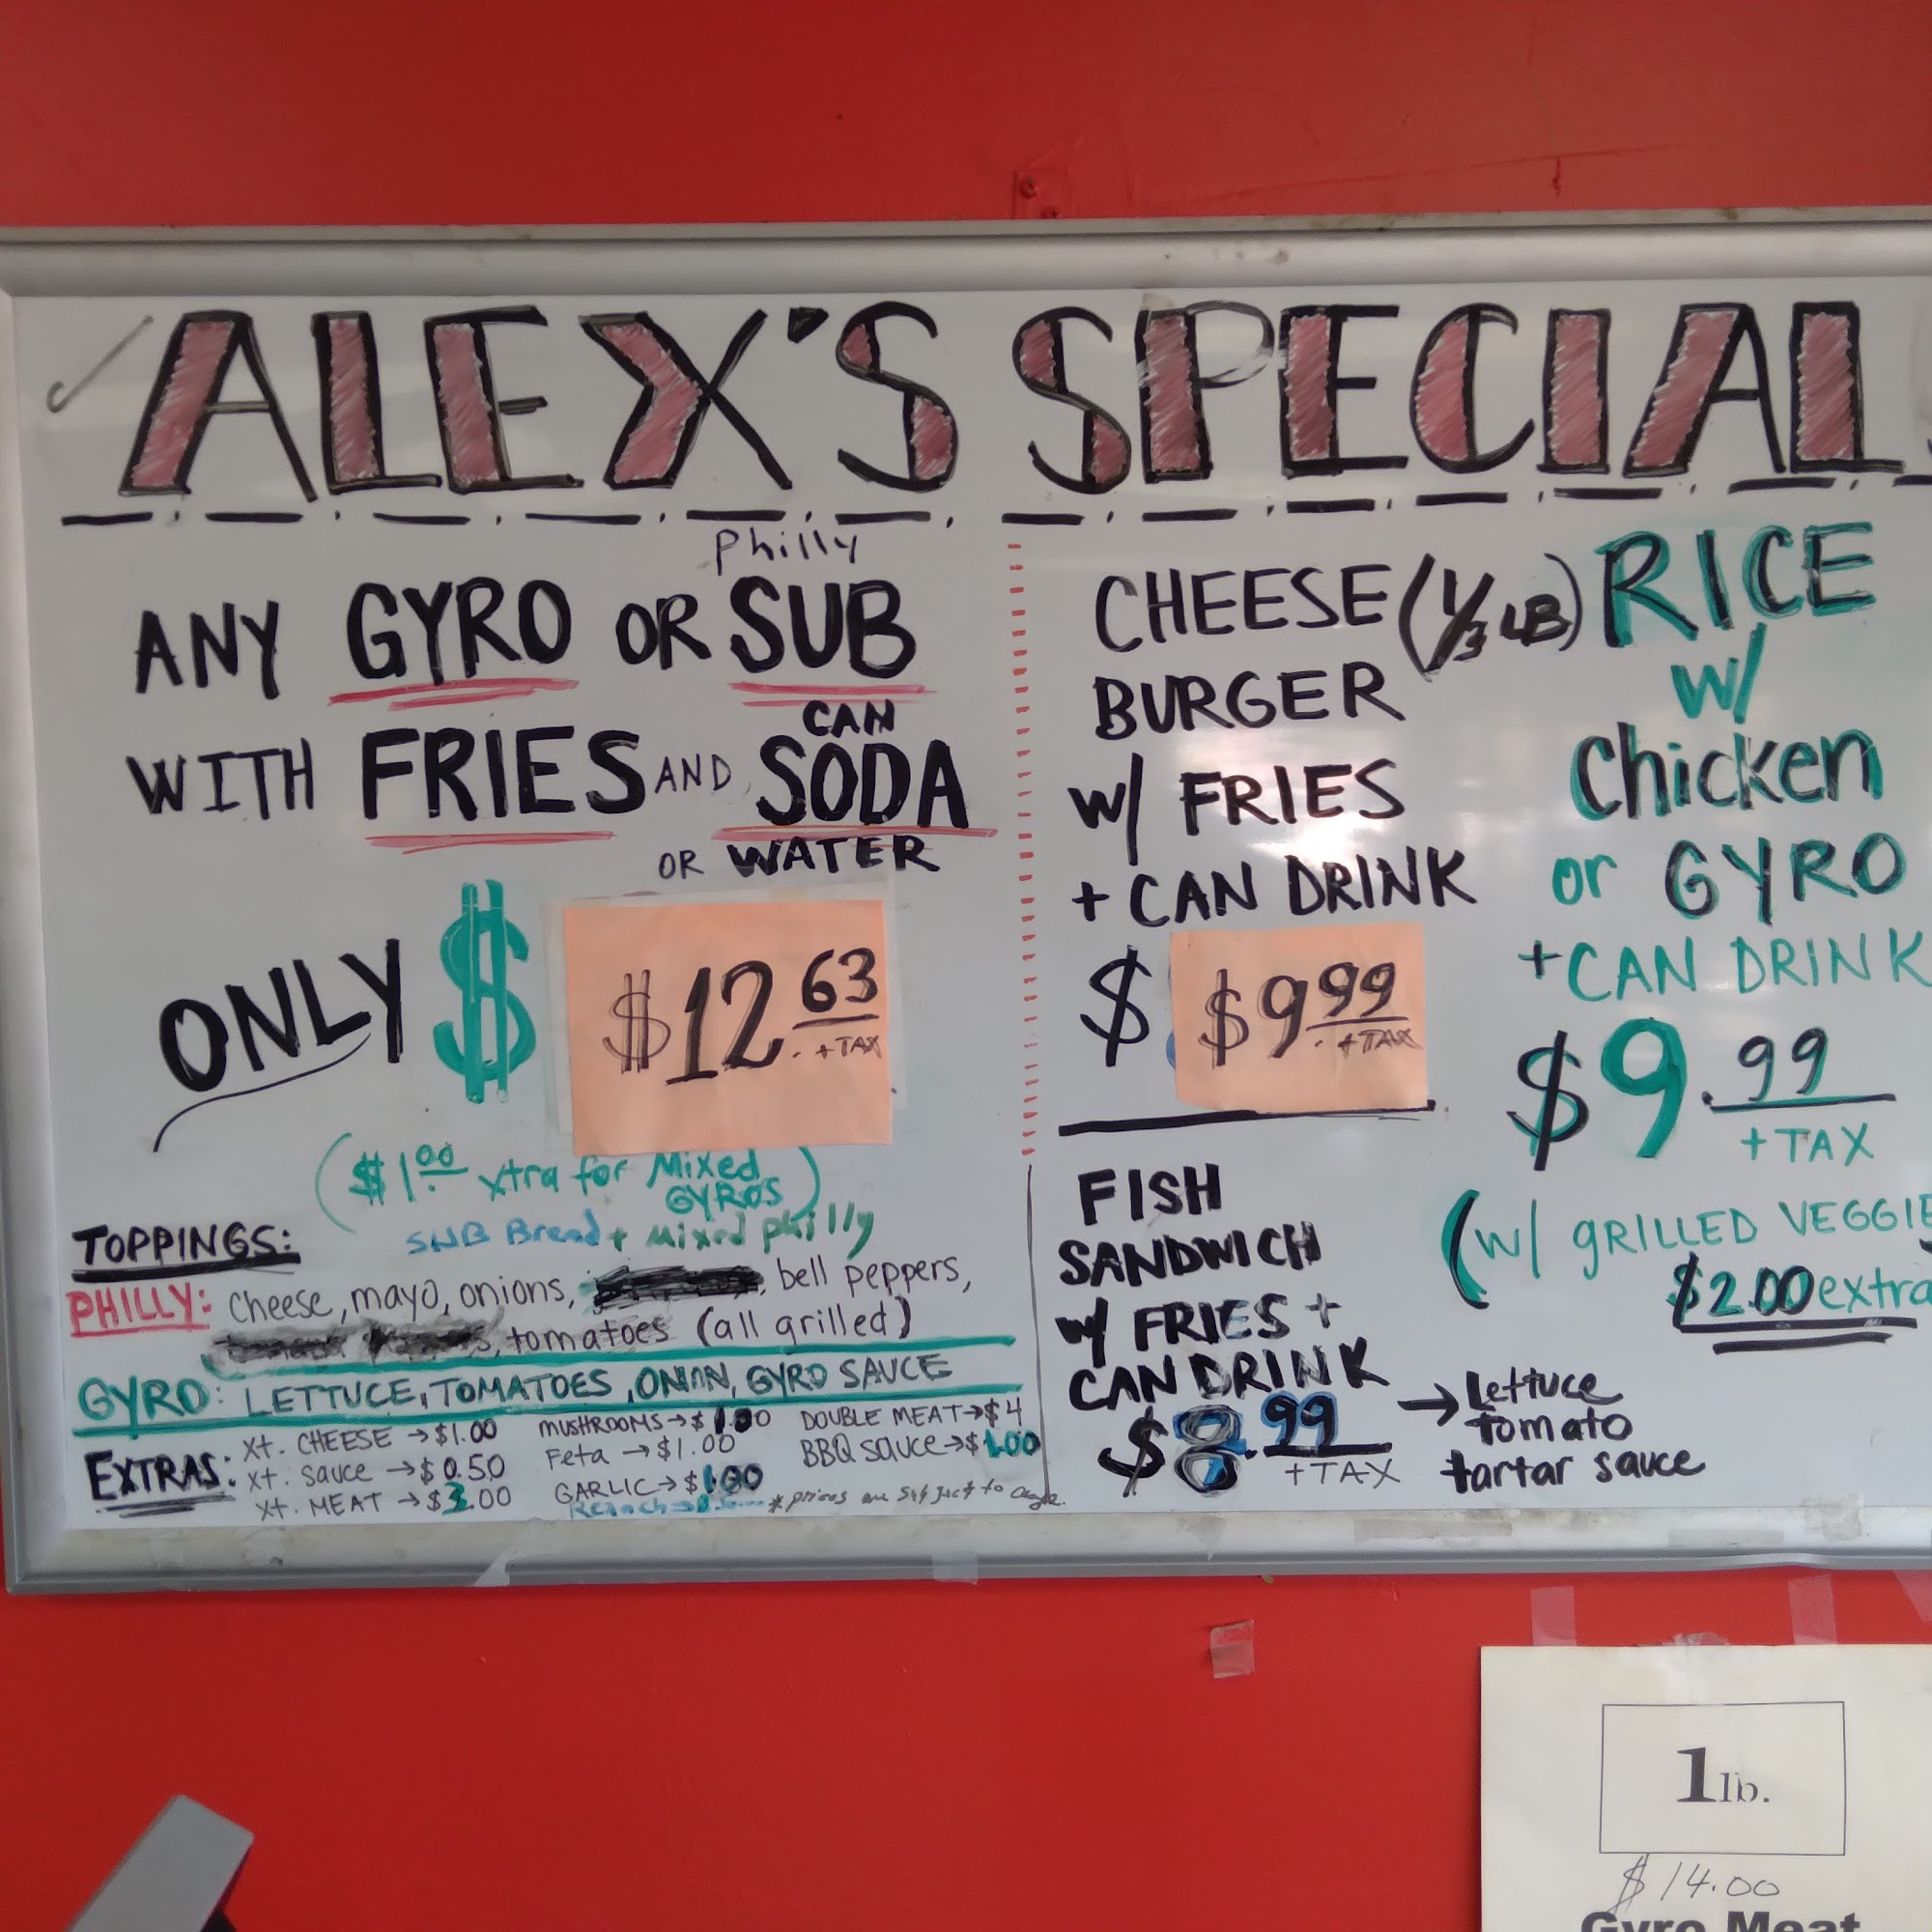 ALEX'S SPECIAL
Philly
ANY GYRO OR SUB
CAN
WITH FRIES AND SODA
OR WATER
ONLY $ $12.63
+TAX
($1.00 xtra for Mixed
GYROS)
SUB Bread + Mixed philly
TOPPINGS:
PHILLY: Cheese, mayo, onions, bell peppers,
tomatoes (all grilled)
GYRO: LETTUCE, TOMATOES, ONION, GYRO SAUCE
EXTRAS:
xt. CHEESE → $1.00
xt. sauce → $0.50
xt. MEAT → $3.00
MUSHROOMS → $1.00
Feta → $1.00
GARLIC → $1.00
Ranch
DOUBLE MEAT → $4
BBQ sauce → $1.00
* prices are subject to change.
CHEESE (1/3 LB)
BURGER
w/ FRIES
+ CAN DRINK
$ $9.99
+TAX
FISH
SANDWICH
w/ FRIES +
CAN DRINK
$8.99
+TAX
→ Lettuce
tomato
tartar sauce
RICE
w/
Chicken
or GYRO
+CAN DRINK
$9.99
+TAX
(w/ GRILLED VEGGIE
$2.00 extra
1 lb.
$14.00
Gyro Meat